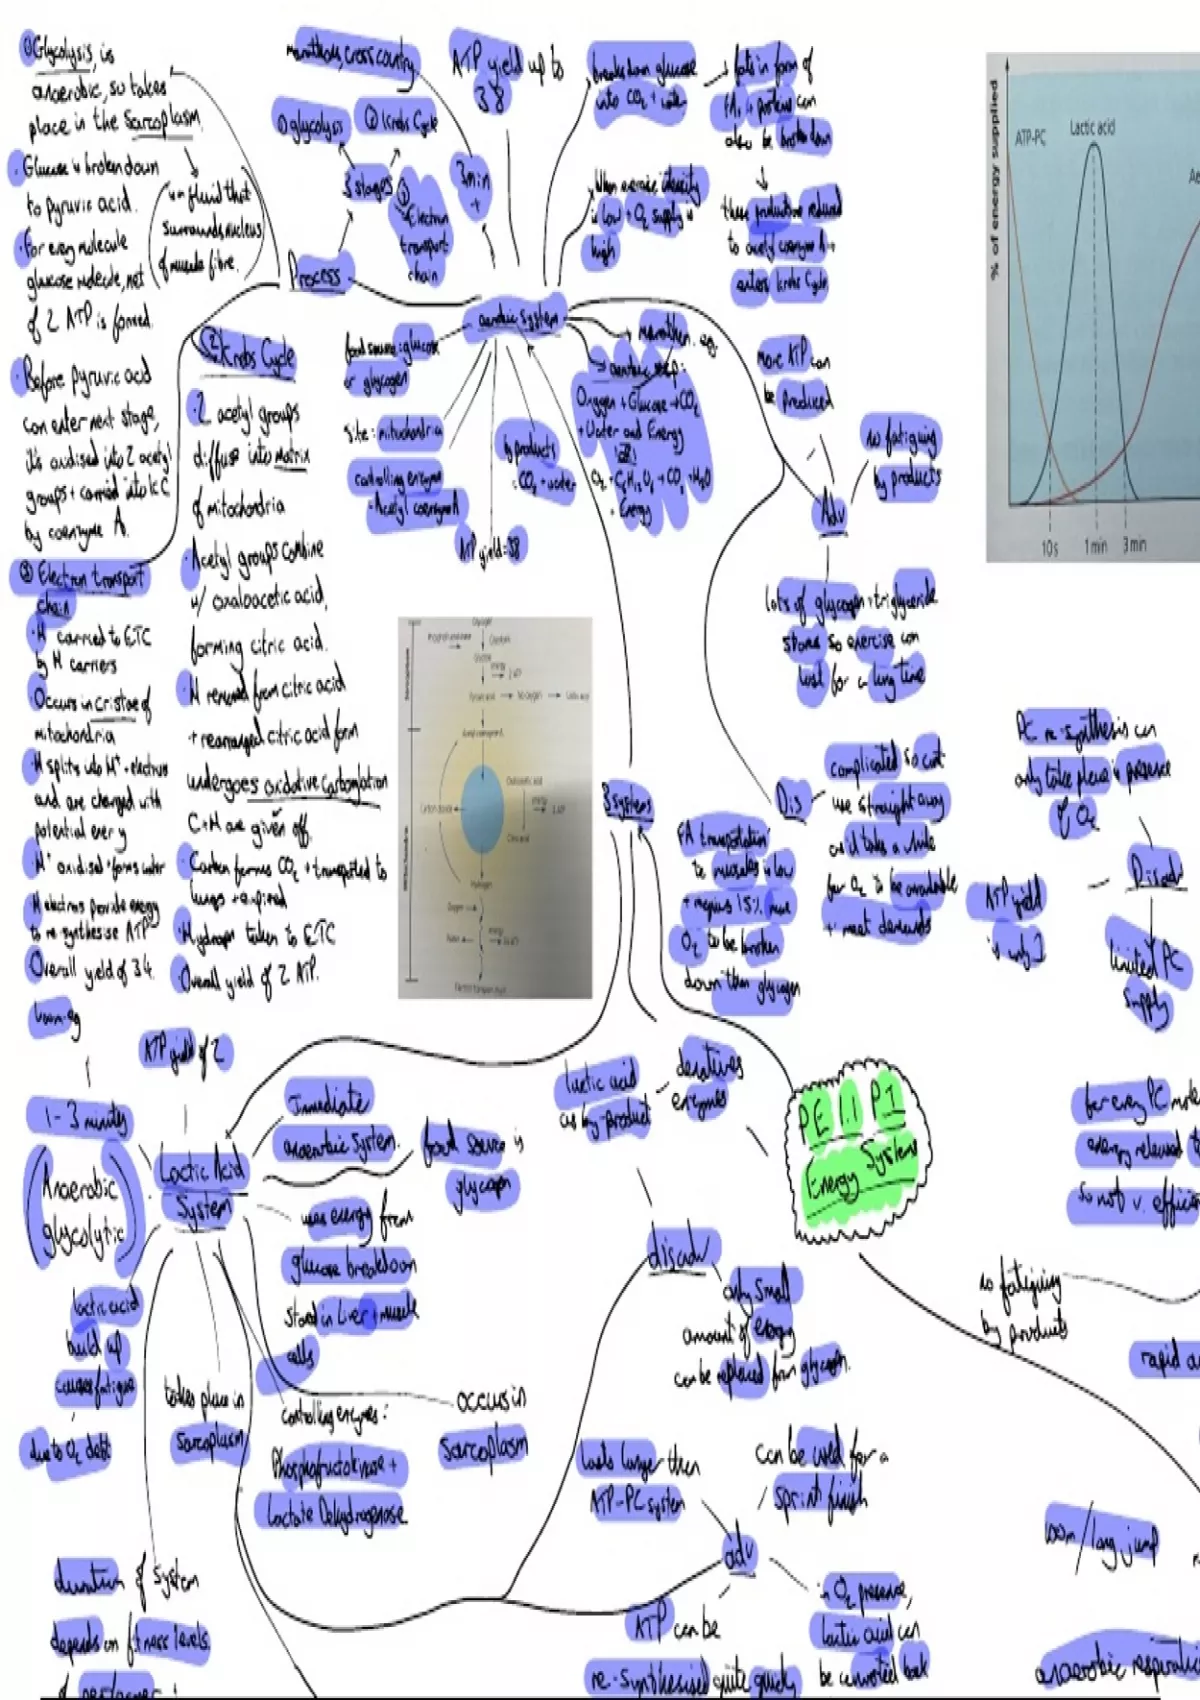 ① Glycolysis, is
anaerobic, so takes
place in the sarcoplasm
= fluid that
surrounds nucleus
of muscle fibre.
· Glucose is broken down
to pyruvic acid.
· For every molecule
glucose molecule, net
of 2 ATP is formed.
· Before pyruvic acid
can enter next stage,
it's oxidised into 2 acetyl
groups + carried into KC
by coenzyme A.
③ Electron transport
chain
· H carried to ETC
by H carriers
Occurs in cristae of
mitochondria
· H splits into H⁺ + electrons
and are charged with
potential
· H⁺ oxidised + forms water
H electrons provide energy
to re-synthesise ATP
Overall yield of 34.
② Krebs Cycle
· 2 acetyl groups
diffuse into matrix
of mitochondria
· Acetyl groups combine
w/ oxaloacetic acid,
forming citric acid.
· H removed from citric acid
+ rearranged citric acid form
undergoes oxidative carboxylation
C+H are given off.
· Carbon forms CO₂ + transported to
lungs + expired
· Hydrogen taken to ETC
· Overall yield of 2 ATP.
marathons, cross country
① glycolysis
② Krebs Cycle
3 stages
③
Electron
transport
chain
Process
3min
+
ATP yield up to
38
breaks down glucose
into CO₂ + water
fats in form of
FA, + proteins can
also be broken down
these
reduced
to acetyl coenzyme A +
enters Krebs Cycle
When exercise intensity
is low + O₂ supply is
high
aerobic system
food source: glucose
or glycogen
site: mitochondria
controlling enzyme
· Acetyl coenzyme A
ATP yield: 38
by products
: CO₂ + water
marathon. eg.
Oxygen + Glucose → CO₂
+ Water and Energy
O₂ + C₆H₁₂O₆ → CO₂ + H₂O
+ Energy
more ATP can
be produced
no fatiguing
by products
Adv
Lots of glycogen + triglyceride
stores so exercise can
last for a long time
Dis
complicated so can't
use straight away
as it takes a while
for O₂ to be available
+ meet demands
FA transportation
to muscles is low
+ requires 15% more
O₂ to be broken
down than glycogen
% of energy supplied
ATP-PC
Lactic acid
Ae
10s
1min
3min
Glycogen
Glucose
energy
Pyruvic acid
No oxygen
Lactic acid
Oxaloacetic acid
Carbon dioxide
Citric acid
Hydrogen
Oxygen
Water
Electron transport chain
3 systems
PE 1.1 P1
Energy Systems
PC re-synthesis can
only take place in presence
of O₂
ATP yield
is only 1
Disadv
limited PC
supply
for every PC mole
energy released t
so not v. efficie
no fatiguing
by products
rapid a
long jump
anaerobic respiratio
ATP yield of 2
1-3 minutes
(Anaerobic
glycolytic)
Lactic Acid
System
Immediate
anaerobic system.
food source is
glycogen
uses energy from
glucose breakdown
stored in liver + muscle
cells
lactic acid
build up
causes fatigue
due to O₂ debt
takes place in
sarcoplasm
controlling enzymes:
Phosphofructokinase +
Lactate Dehydrogenase
occurs in
sarcoplasm
duration of system
depends on fitness levels
of performer
lactic acid
as by-product
enzymes
disadv
only small
amount of energy
can be replaced from glycogen.
lasts longer than
ATP-PC system
can be used for a
sprint finish
adv
ATP can be
re-synthesised quite quickly
in O₂ presence,
lactic acid can
be converted back